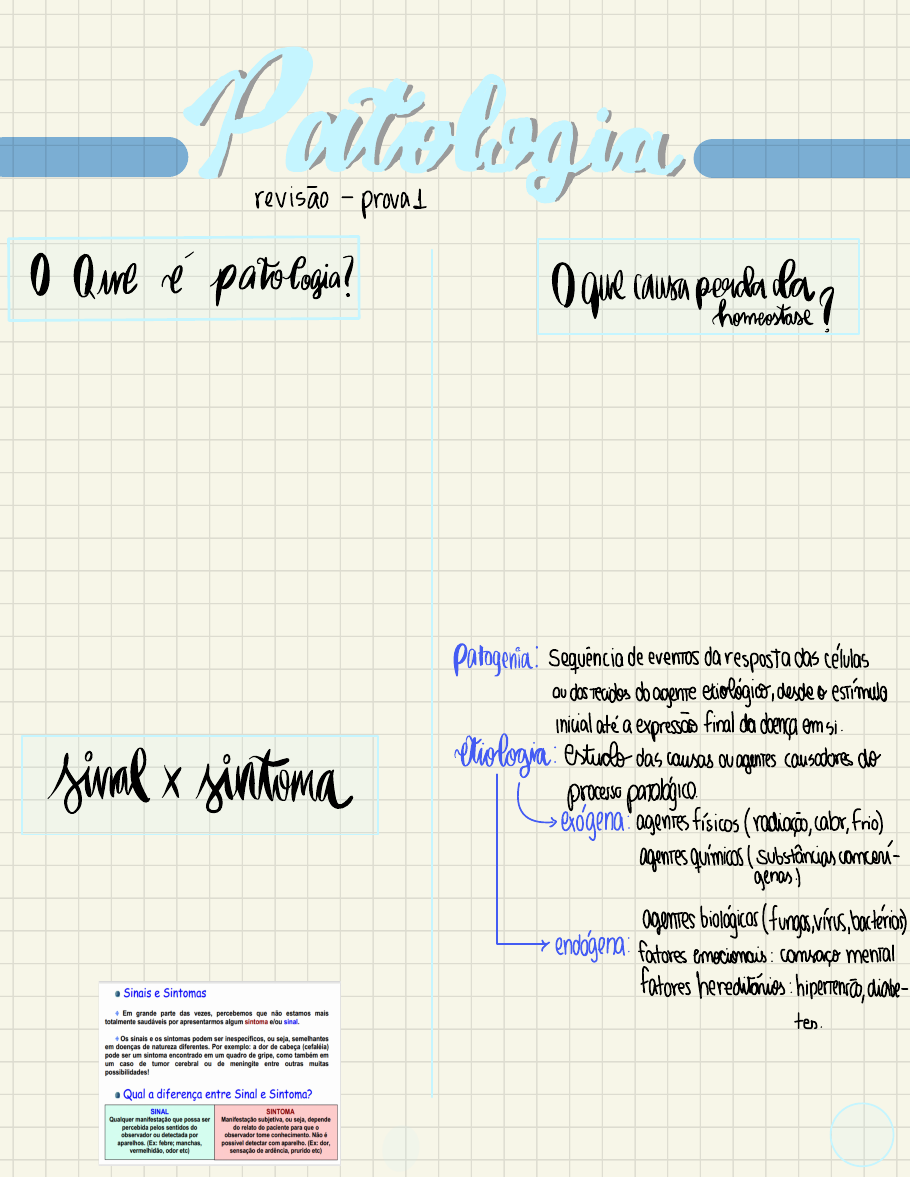 Patologia
revisão - prova 1
O Que é patologia?
sinal x sintoma
Sinais e Sintomas
Em grande parte das vezes, percebemos que não estamos mais
totalmente saudáveis por apresentarmos algum sintoma e/ou sinal.
Os sinais e os sintomas podem ser inespecíficos, ou seja, semelhantes
em doenças de natureza diferentes. Por exemplo: a dor de cabeça (cefaléia)
pode ser um sintoma encontrado em um quadro de gripe, como também em
um caso de tumor cerebral ou de meningite entre outras muitas
possibilidades!
Qual a diferença entre Sinal e Sintoma?
SINAL
Qualquer manifestação que possa ser
percebida pelos sentidos do
observador ou detectada por
aparelhos. (Ex: febre; manchas,
vermelhidão, odor etc)
SINTOMA
Manifestação subjetiva, ou seja, depende
do relato do paciente para que o
observador tome conhecimento. Não é
possível detectar com aparelho. (Ex: dor,
sensação de ardência, prurido etc)
O que causa perda da
homeostase?
Patogenia: Sequência de eventos da resposta das células
ou dos tecidos do agente etiológico, desde o estímulo
inicial até a expressão final da doença em si.
etiologia: Estudo das causas ou agentes causadores do
processo patológico.
exógena: agentes físicos (radiação, calor, frio)
agentes químicos (substâncias cancerí-
genas.)
agentes biológicos (fungos, vírus, bactérias)
endógena: fatores emocionais: cansaço mental
fatores hereditários: hipertensão, diabe-
tes.